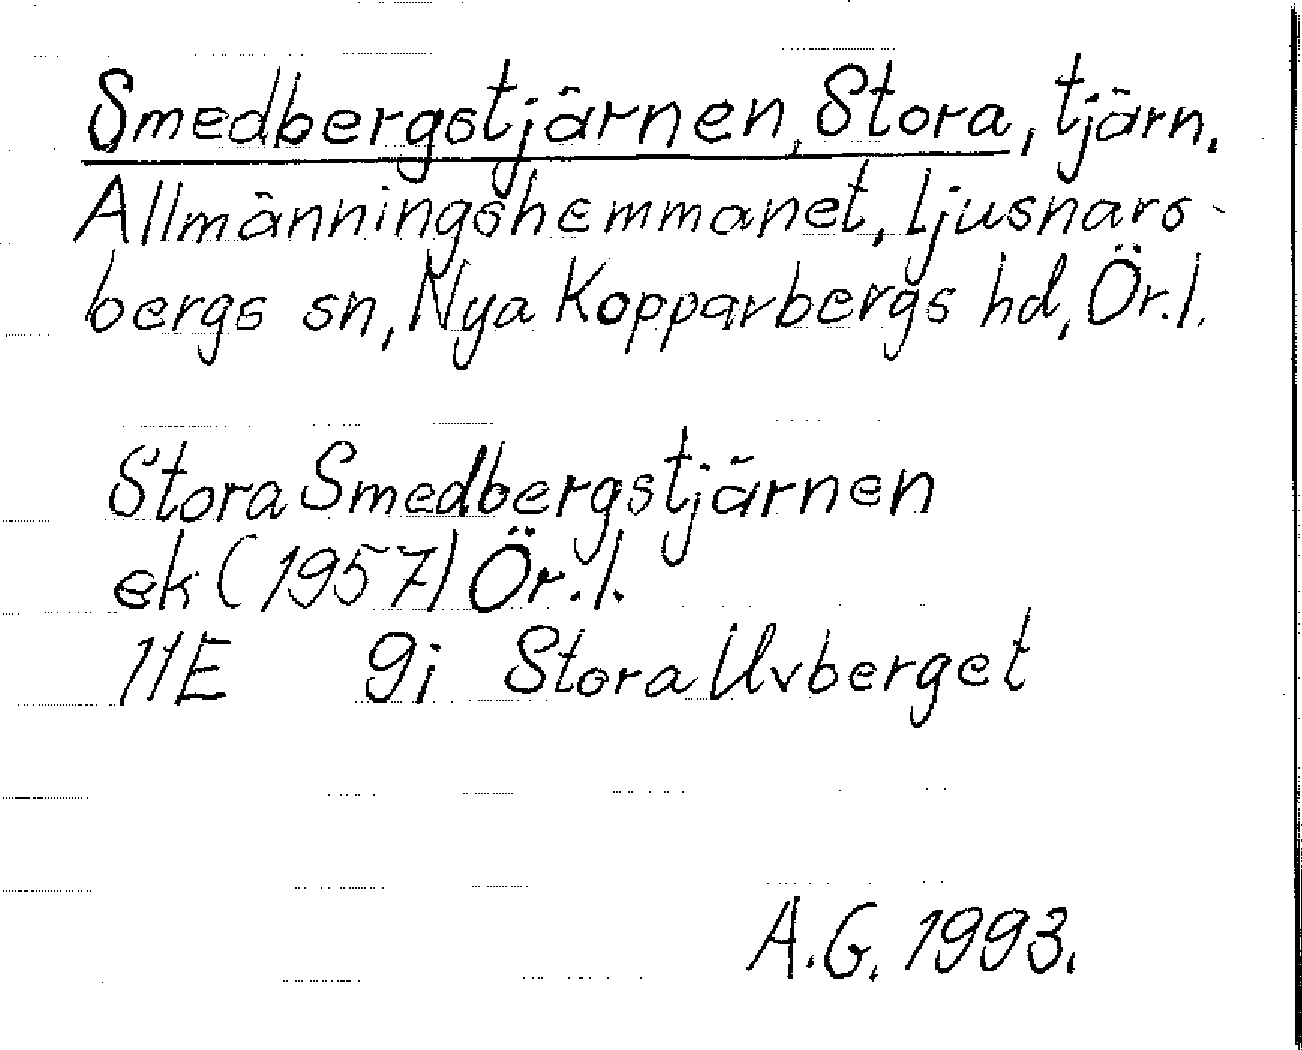 Smedbergstjärnen, Stora, tjärn.
Allmänningshemmanet, Ljusnars-
bergs sn, Nya Kopparbergs hd, Ör.l.
Stora Smedbergstjärnen
ek (1957) Ör.l.
11E 9i Stora Uvberget
A.G. 1993.